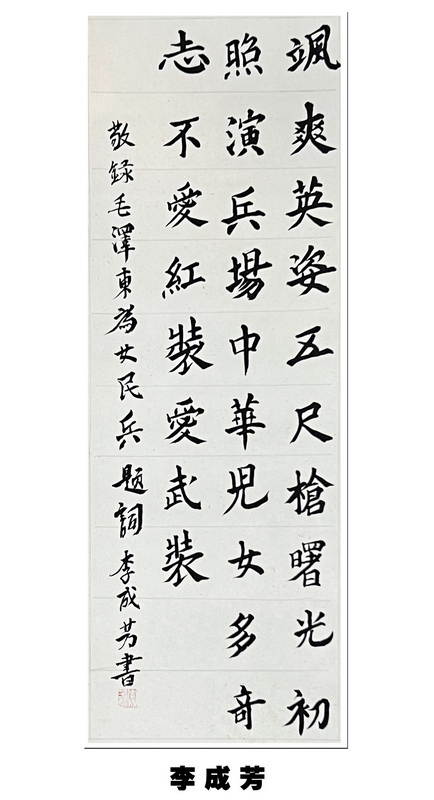 颯爽英姿五尺槍曙光初
照演兵場中華児女多奇
志不愛紅裝愛武裝
敬錄毛澤東為女民兵題詞李成芳書
李成芳